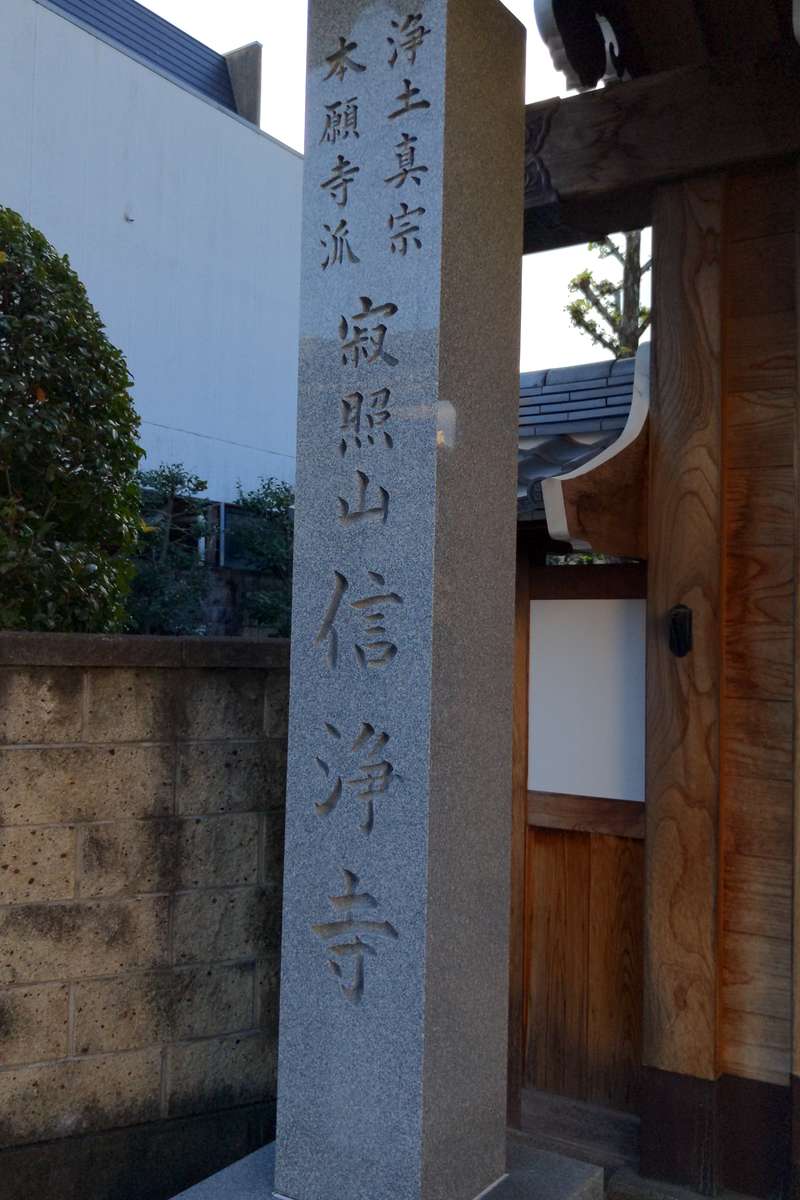 浄土真宗
本願寺派
寂照山信浄寺